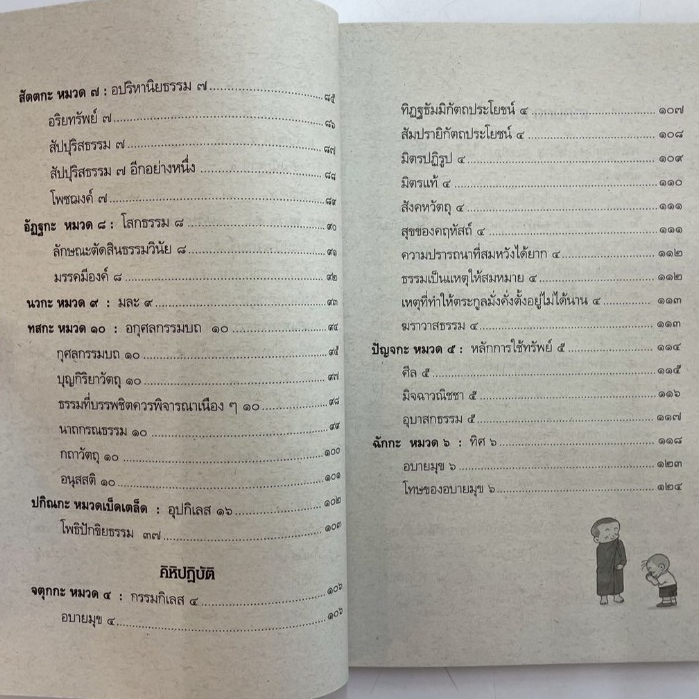 สัตตกะ หมวด ๗ : อปริหานิยธรรม ๗ ........ ๘๕
อริยทรัพย์ ๗ ........ ๘๖
สัปปุริสธรรม ๗ ........ ๘๗
สัปปุริสธรรม ๗ อีกอย่างหนึ่ง ........ ๘๘
โพชฌงค์ ๗ ........ ๘๙
อัฏฐกะ หมวด ๘ : โลกธรรม ๘ ........ ๙๐
ลักษณะตัดสินธรรมวินัย ๘ ........ ๙๑
มรรคมีองค์ ๘ ........ ๙๒
นวกะ หมวด ๙ : มละ ๙ ........ ๙๓
ทสกะ หมวด ๑๐ : อกุศลกรรมบถ ๑๐ ........ ๙๔
กุศลกรรมบถ ๑๐ ........ ๙๕
บุญกิริยาวัตถุ ๑๐ ........ ๙๗
ธรรมที่บรรพชิตควรพิจารณาเนือง ๆ ๑๐ ........ ๙๘
นาถกรณธรรม ๑๐ ........ ๙๙
กถาวัตถุ ๑๐ ........ ๑๐๐
อนุสสติ ๑๐ ........ ๑๐๑
ปกิณกะ หมวดเบ็ดเตล็ด : อุปกิเลส ๑๖ ........ ๑๐๒
โพธิปักขิยธรรม ๓๗ ........ ๑๐๓
คิหิปฏิบัติ
จตุกกะ หมวด ๔ : กรรมกิเลส ๔ ........ ๑๐๖
อบายมุข ๔ ........ ๑๐๖
ทิฏฐธัมมิกัตถประโยชน์ ๔ ........ ๑๐๗
สัมปรายิกัตถประโยชน์ ๔ ........ ๑๐๘
มิตรปฏิรูป ๔ ........ ๑๐๙
มิตรแท้ ๔ ........ ๑๑๐
สังคหวัตถุ ๔ ........ ๑๑๑
สุขของคฤหัสถ์ ๔ ........ ๑๑๑
ความปรารถนาที่สมหวังได้ยาก ๔ ........ ๑๑๒
ธรรมเป็นเหตุให้สมหมาย ๔ ........ ๑๑๒
เหตุที่ทำให้ตระกูลมั่งคั่งตั้งอยู่ไม่ได้นาน ๔ ........ ๑๑๓
ฆราวาสธรรม ๔ ........ ๑๑๓
ปัญจกะ หมวด ๕ : หลักการใช้ทรัพย์ ๕ ........ ๑๑๔
ศีล ๕ ........ ๑๑๕
มิจฉาวณิชชา ๕ ........ ๑๑๖
อุบาสกธรรม ๕ ........ ๑๑๗
ฉักกะ หมวด ๖ : ทิศ ๖ ........ ๑๑๘
อบายมุข ๖ ........ ๑๒๓
โทษของอบายมุข ๖ ........ ๑๒๔